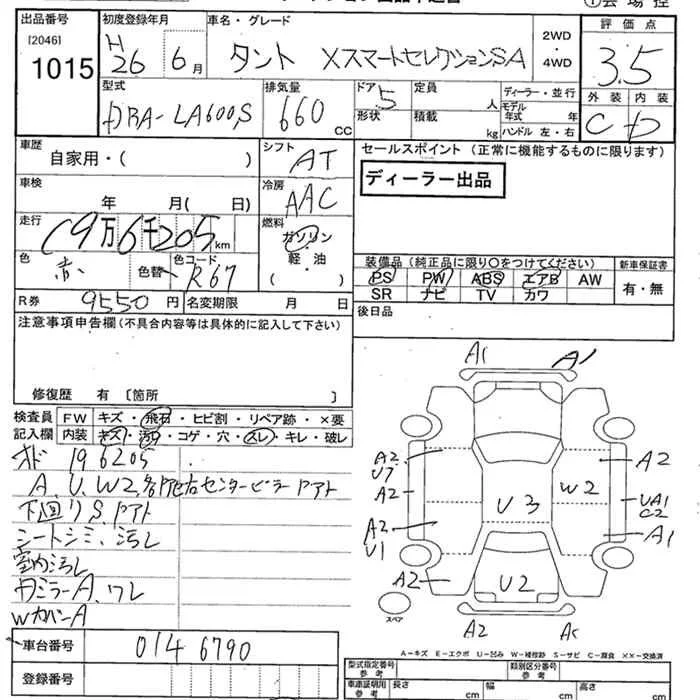 ①会場控
出品番号
[2046]
1015
初度登録年月
H26 6月
車名・グレード
タント XスマートセレクションSA
2WD
・
4WD
評価点
3.5
外装 内装
C D
型式
DBA-LA600S
排気量
660 cc
ドア
5
形状
定員
人
積載
kg
ディーラー・並行
モデル年式 年
ハンドル 左・右
車歴
自家用・( )
シフト
AT
セールスポイント (正常に機能するものに限ります)
ディーラー出品
車検
年 月( 日)
冷房
AAC
走行
19万6千205km
燃料
ガソリン
・
軽・油
( )
色
赤
色替
色コード
R67
装備品 (純正品に限り○をつけてください)
PS PW ABS エアB AW
SR ナビ TV カワ
新車保証書
有・無
R券
9550円
名変期限 月 日
後日品
注意事項申告欄(不具合内容等は具体的に記入して下さい)
修復歴 有 〔箇所 〕
検査員
記入欄
FW キズ・飛石・ヒビ割・リペア跡・×要
内装 キズ・汚れ・コゲ・穴・スレ・キレ・破レ
オド 196205
A、U、W2、各所 右センターピラー アト
下回りS、アト
シートシミ、汚レ
室内汚レ
ミラーA、ワレ
WカバーA
A1 A1
A2
U7
A2
A2
U1
A2
U3
W2
U2
A2
UA1
C2
A1
A2
スペア
A-キズ E-エクボ U-凹み W-補修跡 S-サビ C-腐食 XX-交換済
車台番号
0146790
登録番号
型式指定番号
参考
類別区分番号
参考
車庫証明用
参考
長さ cm 幅 cm 高さ cm